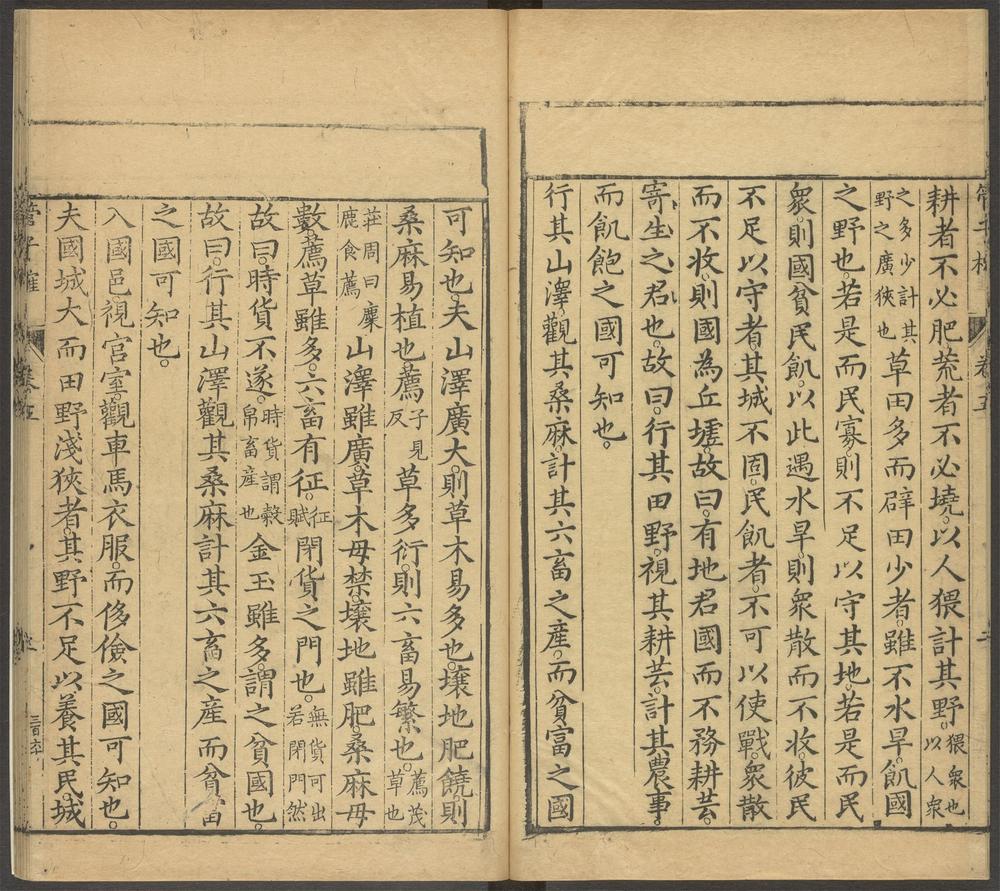 管子榷 卷五 二
耕者不必肥。荒者不必墝。以人猥計其野。猥衆也以人衆
之多少計其野之廣狹也草田多而辟田少者。雖不水旱。飢國
之野也。若是而民寡。則不足以守其地。若是而民
衆。則國貧民飢。以此遇水旱。則衆散而不收。彼民
不足以守者。其城不固。民飢者。不可以使戰。衆散
而不收。則國為丘墟。故曰。有地君國而不務耕芸。
寄生之君也。故曰。行其田野。視其耕芸。計其農事。
而飢飽之國可知也。
行其山澤。觀其桑麻。計其六畜之產。而貧富之國
可知也。夫山澤廣大。則草木易多也。壤地肥饒。則
桑麻易植也。薦子見反草多衍。則六畜易繁也。薦茂草也
莊周曰麋鹿食薦山澤雖廣。草木毋禁。壤地雖肥。桑麻毋
數。薦草雖多。六畜有征。征賦閉貨之門也。無貨可出若閉門然
故曰。時貨不遂。時貨謂穀帛畜產也金玉雖多。謂之貧國也。
故曰。行其山澤觀其桑麻計其六畜之產而貧富
之國可知也。
入國邑。視宮室。觀車馬衣服。而侈儉之國可知也。
夫國城大而田野淺狹者。其野不足以養其民。城
管子榷 卷五